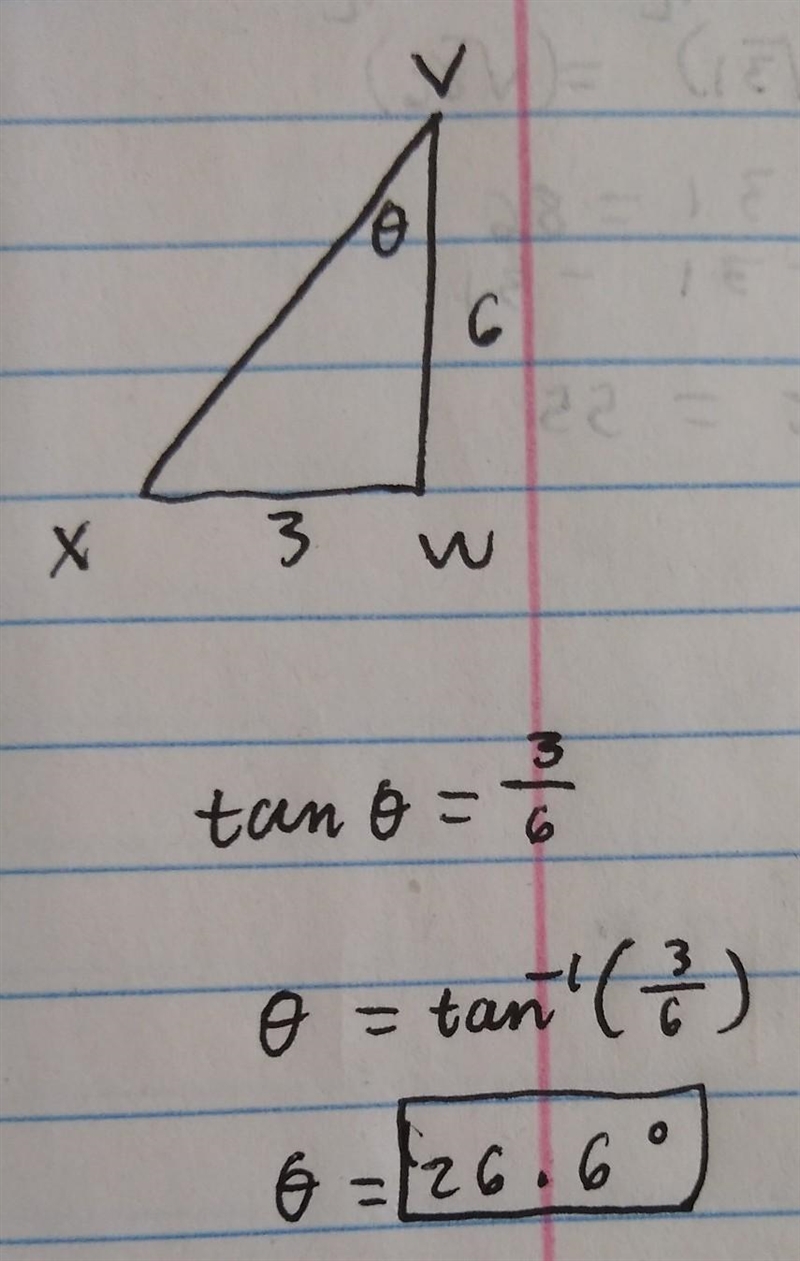 V
θ
6
3
X W
tan θ = 3/6
θ = tan⁻¹(3/6)
θ = 26.6°